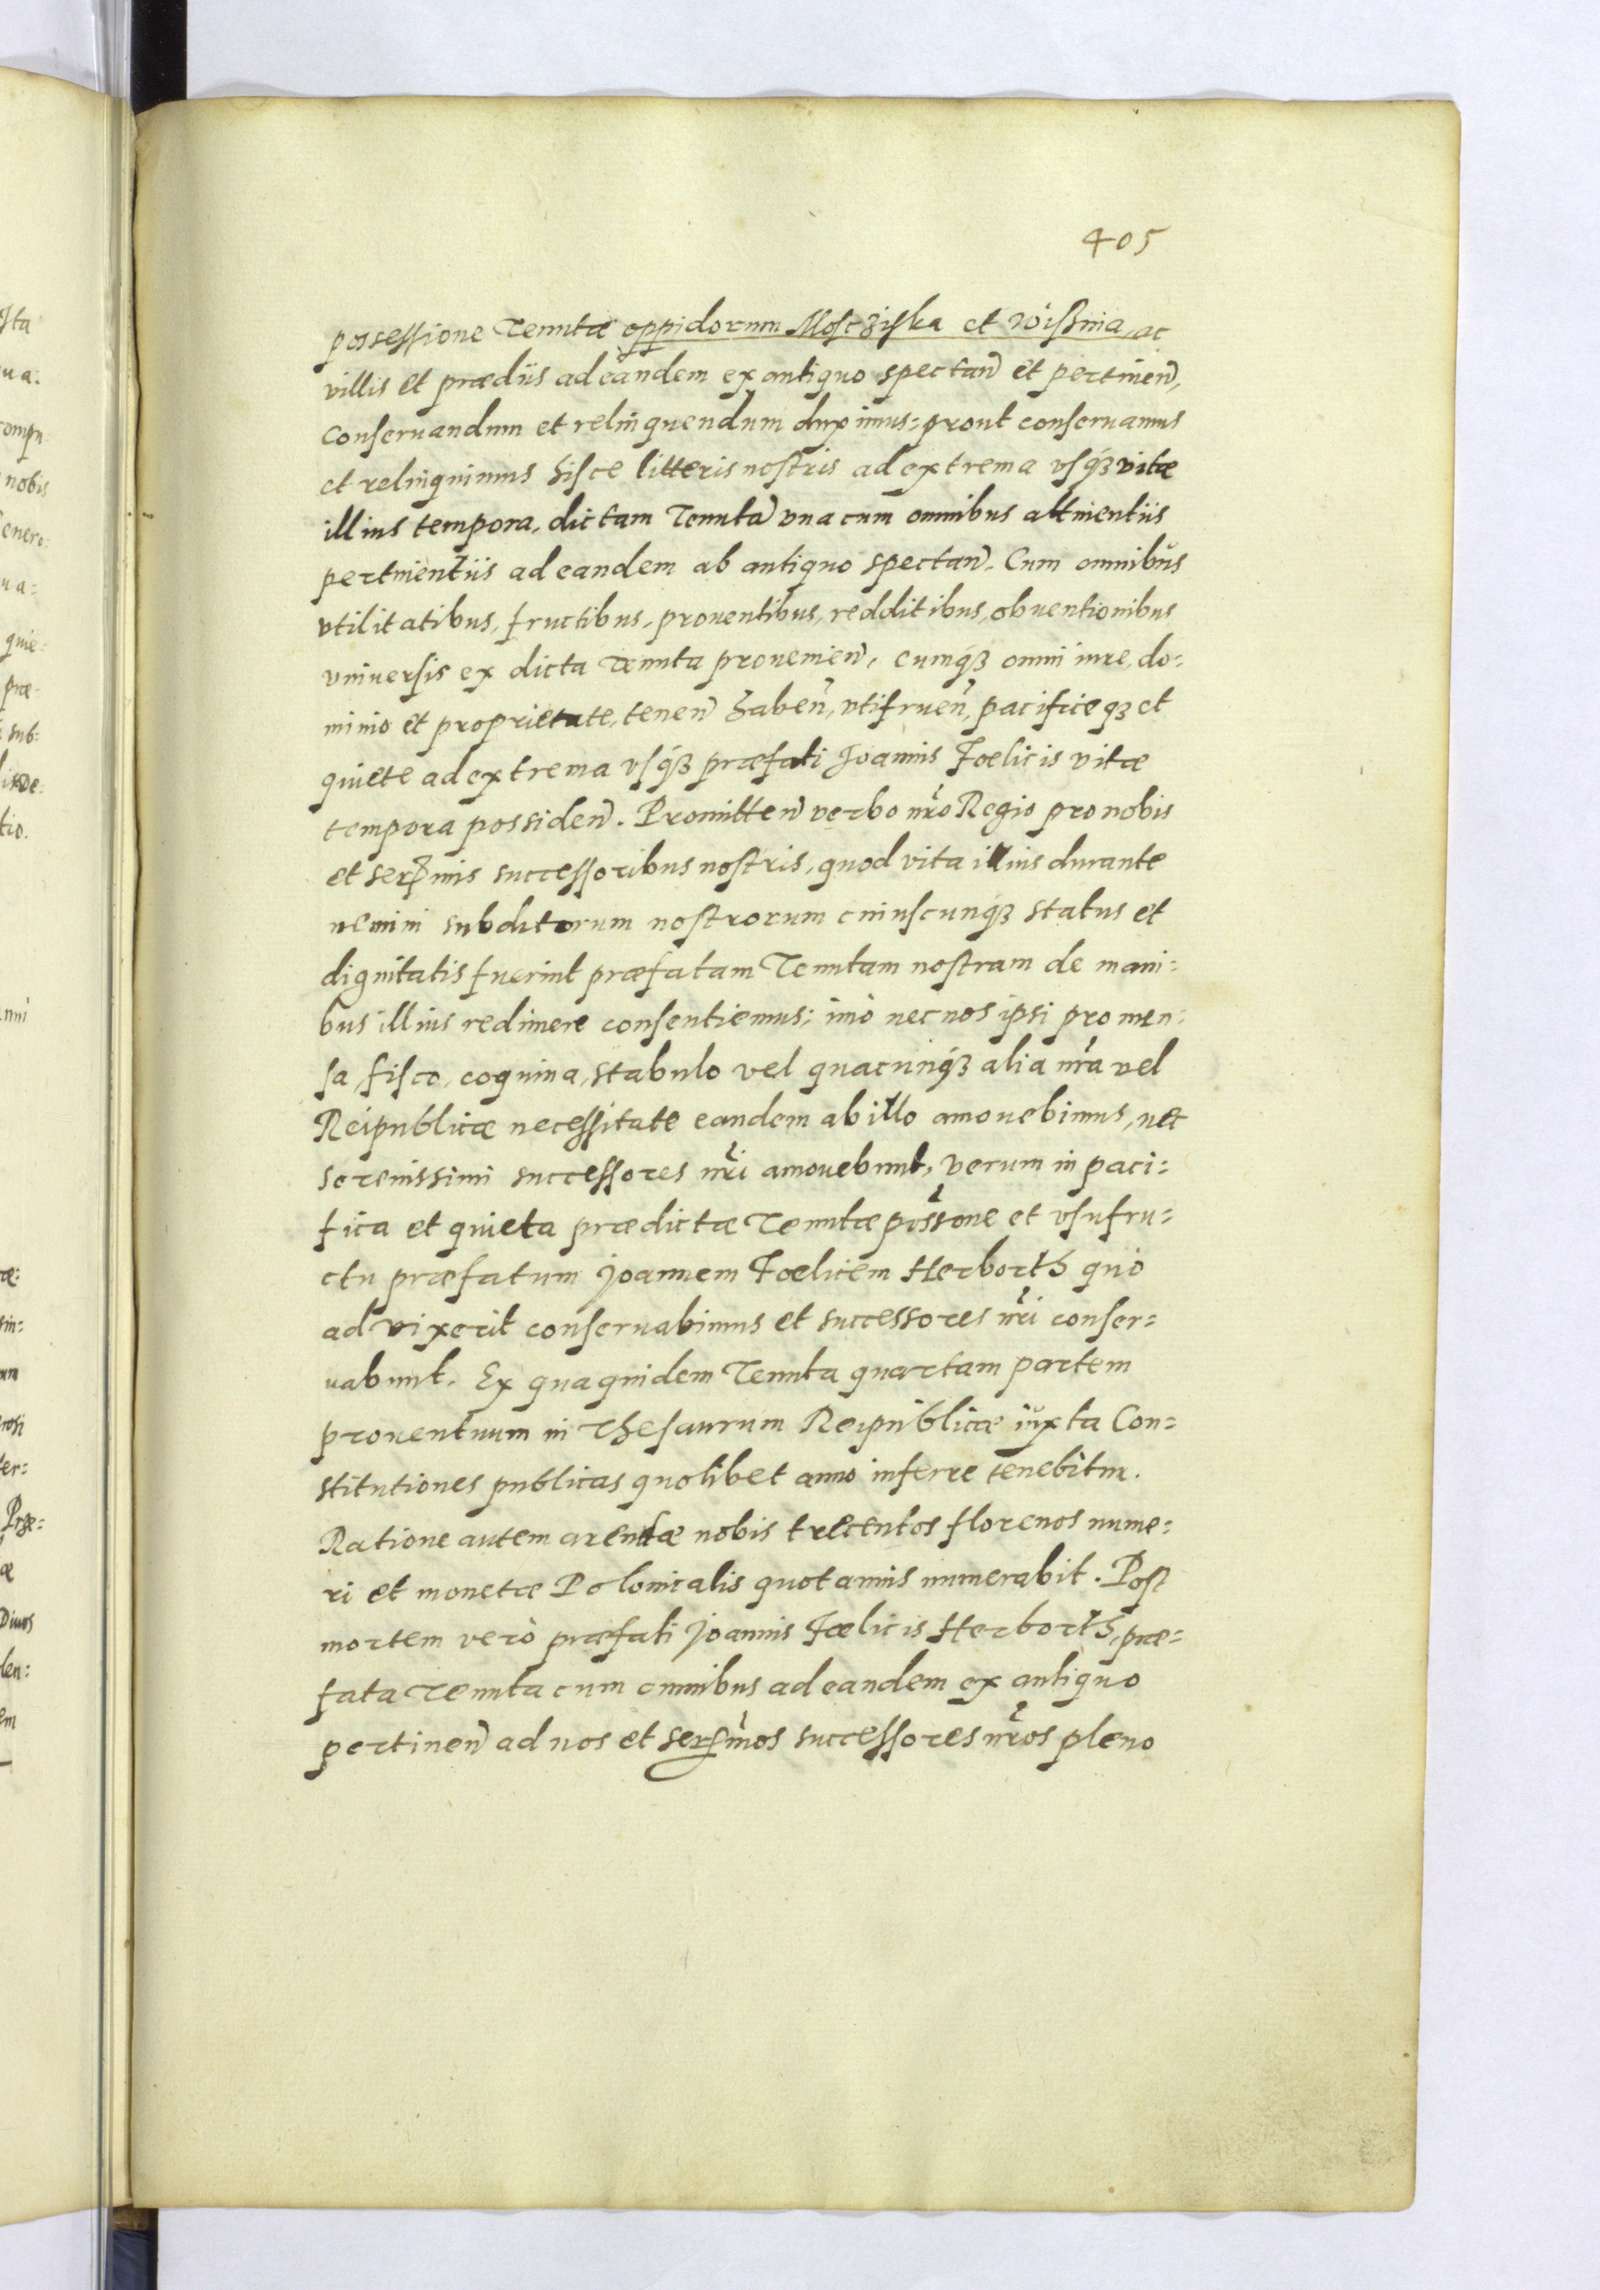 405
possessione Tenutæ oppidorum Moscziska et Wissnia, ac
villis et prædiis ad eandem ex antiquo spectan̄ et pertinen̄,
conseruandum et relinquendum duximus: prout conseruamus
et relinquimus hisce litteris nostris ad extrema vsq3 vitæ
illius tempora, dictam Tenutā vna cum omnibus attinentiis
pertinentiis ad eandem ab antiquo spectan̄. Cum omnibus
vtilitatibus, fructibus, prouentibus, redditibus, obuentionibus
vniuersis ex dicta Tenuta prouenien̄, cumq3 omni iure, do:
minio et proprietate, tenen̄ haben̄, vtifruen̄, pacificeq3 et
quiete ad extrema vsq3 præfati Joannis Fœlicis vitæ
tempora possiden̄. Promitten̄ verbo nr̄o Regio pro nobis
et serm̄is successoribus nostris, quod vita illius durante
nemini subditorum nostrorum cuiuscunq3 status et
dignitatis fuerint præfatam Tenutam nostram de mani:
bus illius redimere consentiemus; imò nec nos ipsi pro men:
sa, fisco, coquina, stabulo vel quacunq3 alia nr̄a vel
Reipublicæ necessitate eandem ab illo amouebimus, nec
serenissimi successores nr̄i amouebunt, verum in paci:
fica et quieta prædictæ Tenutæ poss̄one et vsufru:
ctu præfatum Joannem Fœlicem Herborth quo
ad vixerit conseruabimus et successores nr̄i conser:
uabunt. Ex qua quidem Tenuta quartam partem
prouentuum in Thesaurum Reipublicæ iuxta Con:
stitutiones publicas quolibet anno inferre tenebitur.
Ratione autem arendæ nobis trecentos florenos nume:
ri et monetæ Polonicalis quotannis numerabit. Post
mortem verò præfati Joannis Fœlicis Herborth, præ:
fata Tenuta cum omnibus ad eandem ex antiquo
pertinen̄ ad nos et serm̄os successores nr̄os pleno